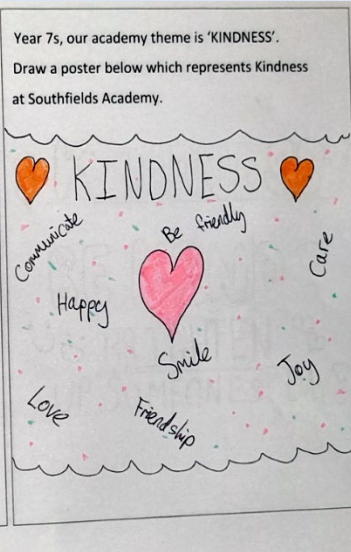 Year 7s, our academy theme is 'KINDNESS'.
Draw a poster below which represents Kindness
at Southfields Academy.
KINDNESS
Communicate
Be friendly
Care
Happy
Smile
Joy
Love
Friendship